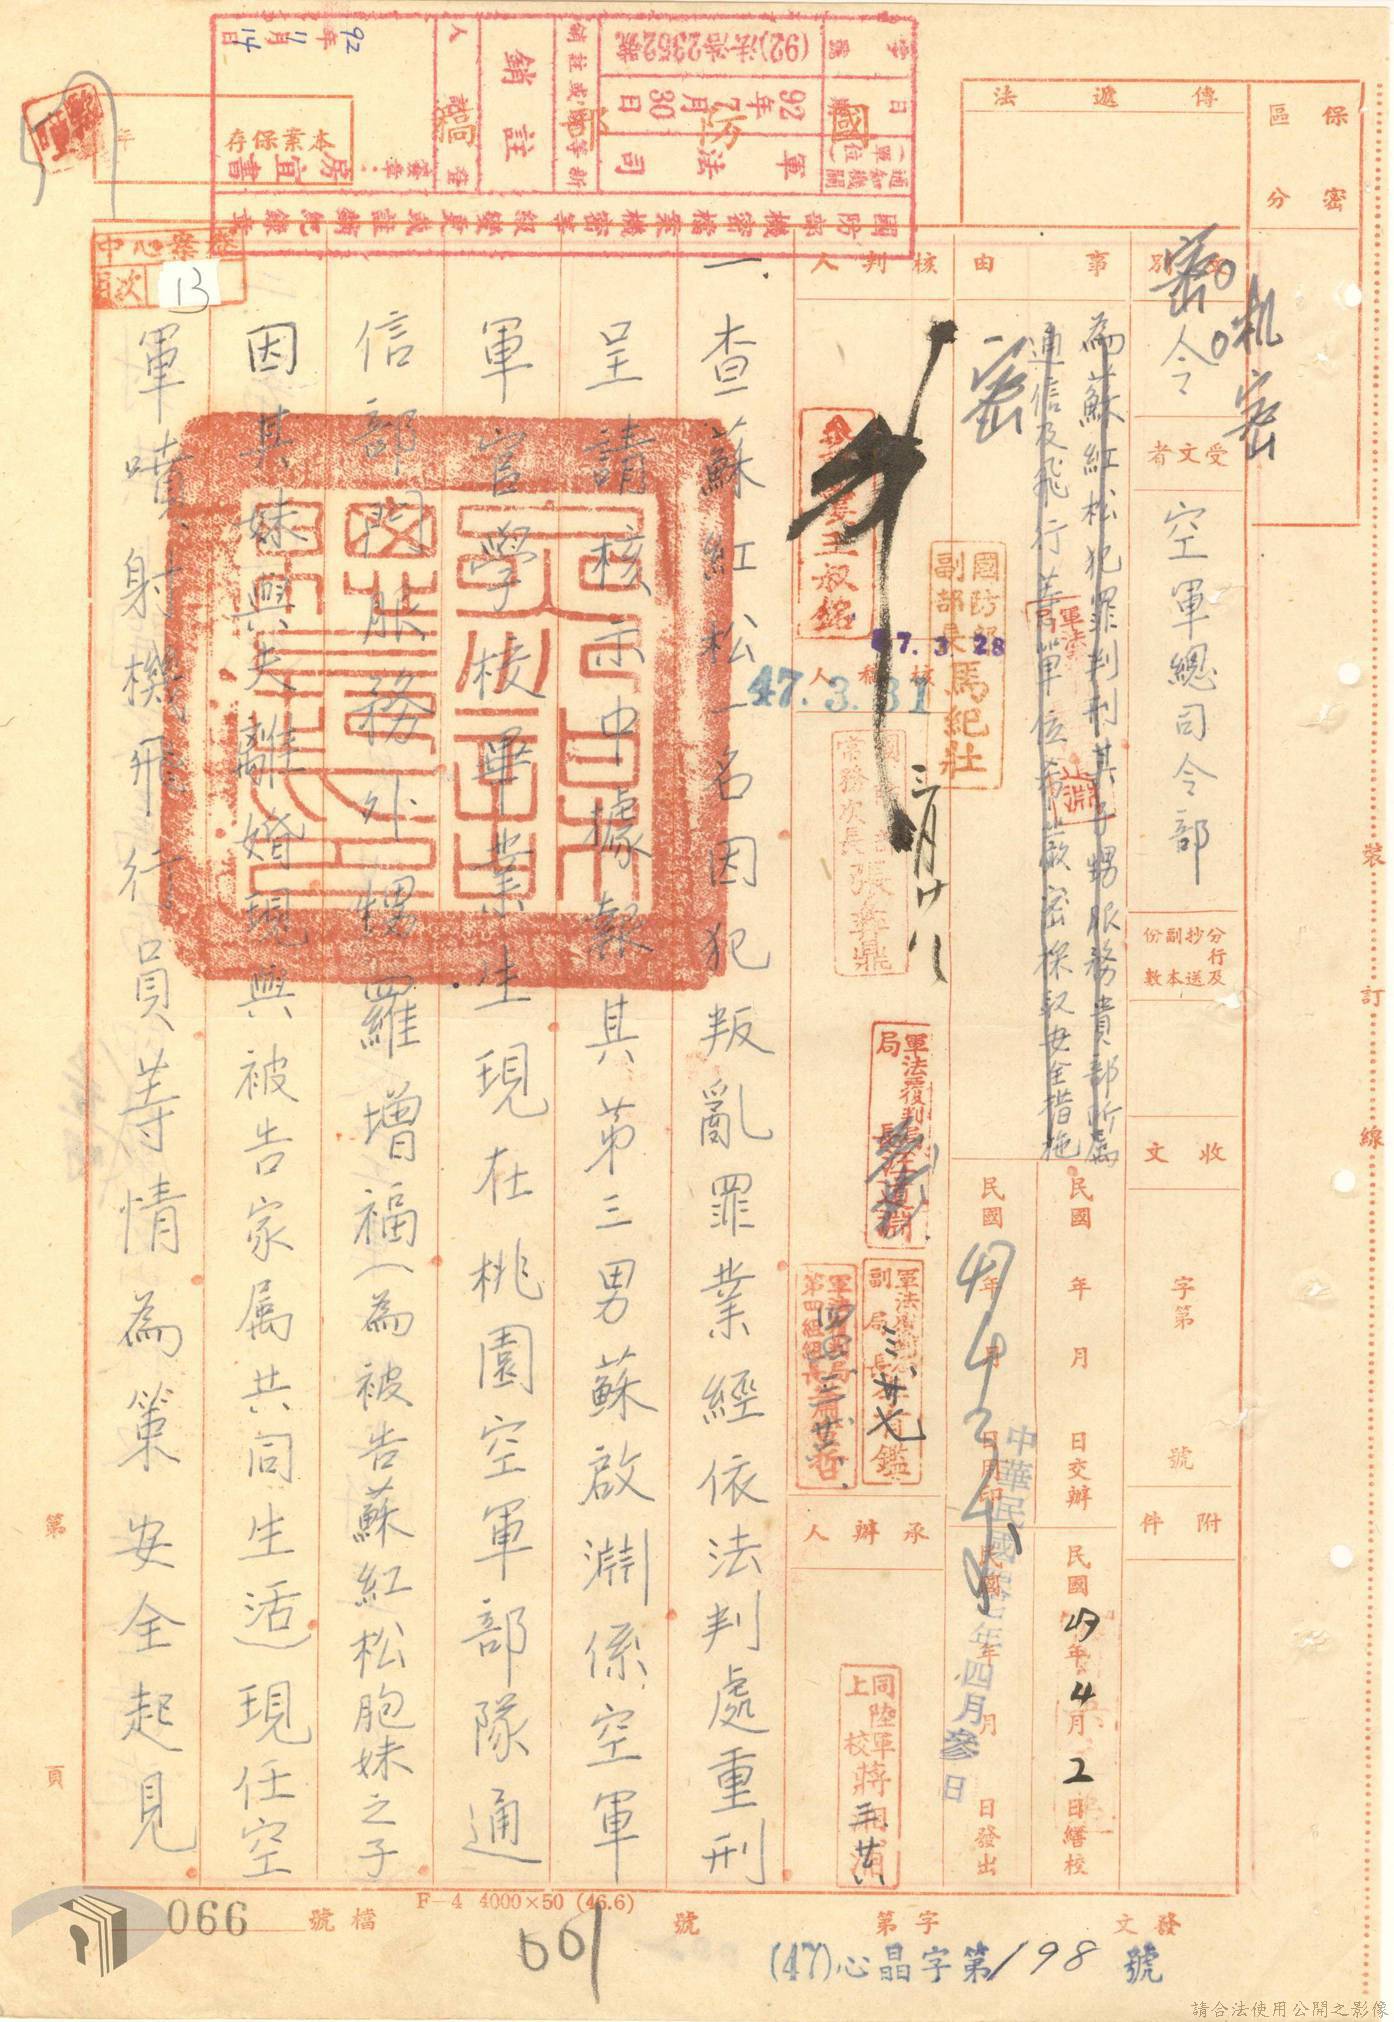 保密
區分
傳遞法
密
机密
令
受文者
空軍總司令部
分行及
抄送
副本
份數
收文
字第
號
附件
事由
為蘇紅松犯罪判刑其子甥服務貴部所屬
通信及飛行等單位希嚴密採取安全措施
密
民國 年 月 日交辦
民國 47 年 4 月 2 日繕校
民國 47 年 4 月 2 日用印
民國 年 月 日發出
中華民國 年四月參日
核判人
國防部
副部長 馬紀壯
47.3.28
47.3.31
三月廿八
核稿人
常務次長 張彝鼎
軍法覆判局
局長
副局長
三廿七
承辦人
同陸軍
上校 蔣
一、查蘇紅松一名因犯叛亂罪業經依法判處重刑
呈請核示中據報其第三男蘇啟淵係空軍
軍官學校畢業生現在桃園空軍部隊通
信部門服務外甥羅增福(為被告蘇紅松胞妹之子
因其妹與夫離婚現與被告家屬共同生活)現任空
軍噴射機飛行員等情為策安全起見
國防部機密檔案機密等級變更或註銷紀錄章
通知機關
(單位)
軍法司
日期
92年7月30日
字號
(92)法浩2352號
新等級或註銷
註銷
登記人
簽章
92年11月14日
本案保存
年
檔案中心
頁次
13
裝訂線
第
頁
檔號
066
F-4 4000×50 (46.6)
001
發文
字第
號
(47)心晶字第198號
請合法使用公開之影像